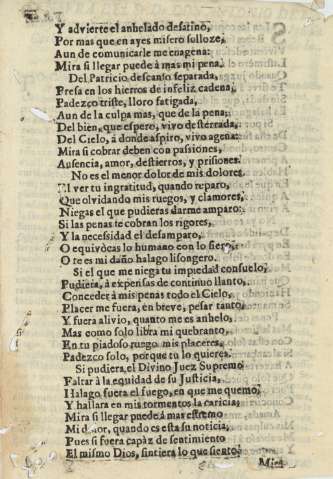 Y advierte el anhelado desatino,
Por mas que en ayes misero solloze,
Aun de comunicarle me enagena:
Mira si llegar puede à mas mi pena.
Del Patricio descanso separada,
Presa en los hierros de infeliz cadena,
Padezco triste, lloro fatigada,
Aun de la culpa mas, que de la pena;
Del bien, que espero, vivo desterrada,
Del Cielo, à donde aspiro, vivo agena:
Mira si cobrar deben con passiones,
Ausencia, amor, destierros, y prisiones.
No es el menor dolor de mis dolores
El ver tu ingratitud, quando reparo,
Que olvidando mis ruegos, y clamores,
Niegas el que pudieras darme amparo:
Si las penas te cobran los rigores,
Y la necessidad el desamparo,
O equivocas lo humano con lo fiero,
O te es mi daño halago lisongero.
Si el que me niega tu impiedad consuelo,
Pudiera, à expensas de continuo llanto,
Conceder à mis penas todo el Cielo,
Placer me fuera, en breve, pesar tanto,
Y fuera alivio, quanto me es anhelo.
Mas como solo libra mi quebranto,
En tu piadoso ruego mis placeres,
Padezco solo, porque tu lo quieres.
Si pudiera el Divino Juez Supremo
Faltar à la equidad de su Justicia,
Halago fuera el fuego, en que me quemo,
Y hallara en mis tormentos la caricia;
Mira si llegar puede à mas estremo
Mi dolor, quando es esta su noticia,
Pues si fuera capàz de sentimiento
El mismo Dios, sintiera lo que siento.
Mira